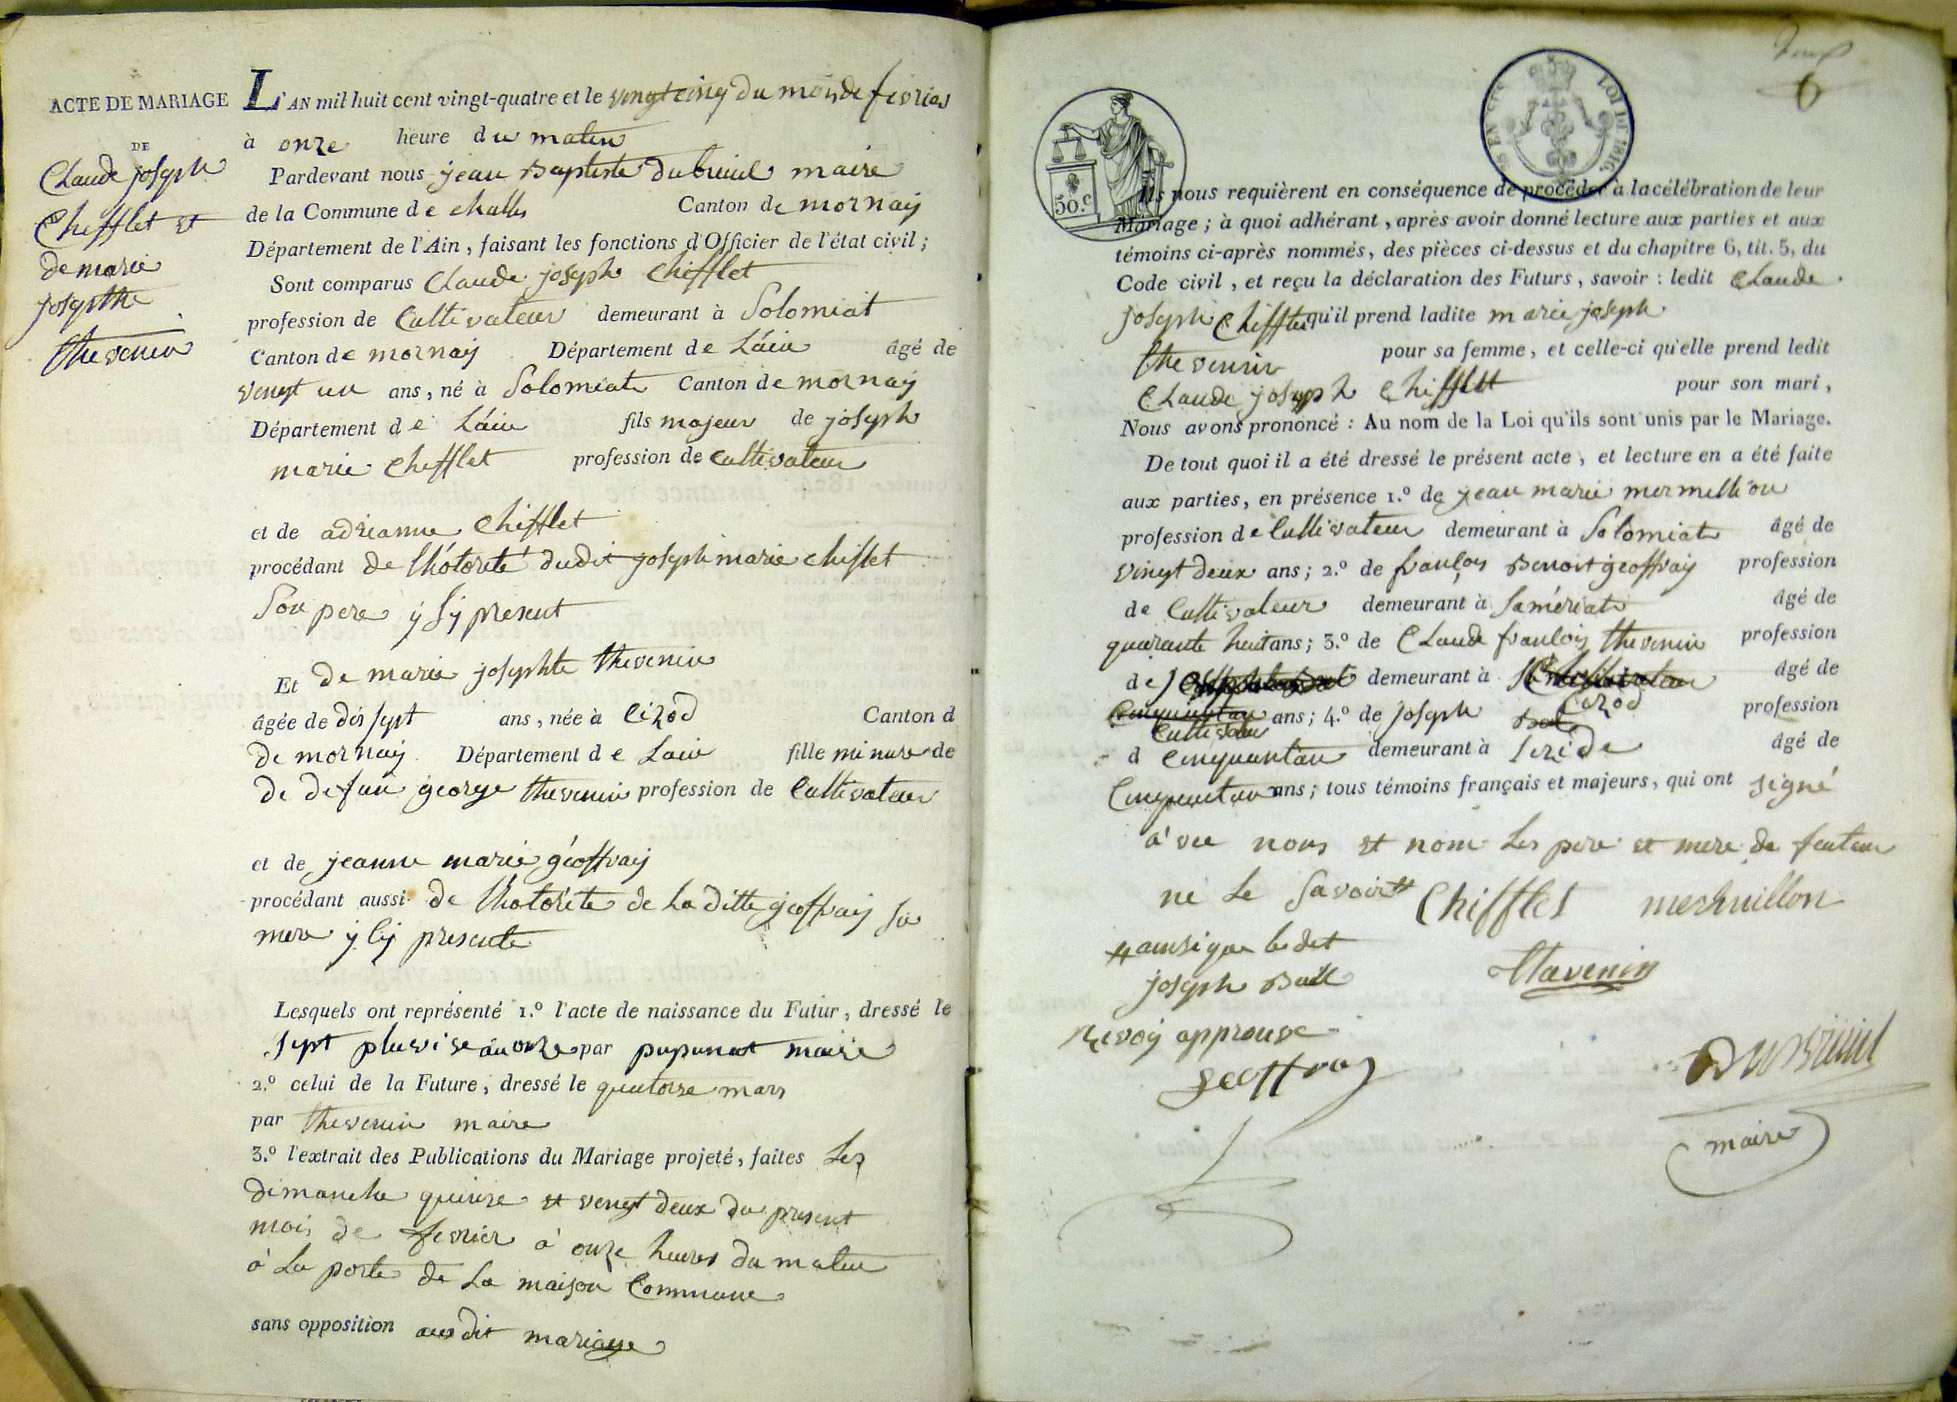 ACTE DE MARIAGE
DE
Claude joseph
Chifflet et
de marie
josephte
thevenin
L'AN mil huit cent vingt-quatre et le vingt cinq du mois de fevrier
à onze heure du matin
Pardevant nous jean Baptiste dubreuil maire
de la Commune de challes Canton de mornay
Département de l'Ain, faisant les fonctions d'Officier de l'état civil;
Sont comparus Claude joseph Chifflet
profession de Cultivateur demeurant à Solomiat
Canton de mornay Département de Láin âgé de
vingt un ans, né à Solomiat Canton de mornay
Département de Láin fils majeur de joseph
marie Chifflet profession de Cultivateur
et de adrianne Chifflet
procédant de lhótorité dudit joseph marie chiflet
Son pere y Sy present
Et de marie josephte thevenin
âgée de dis sept ans, née à Cizod Canton d
de mornay Département de Lain fille minure de
de defun george thevenin profession de Cultivateur
et de jeanne marie géoffray
procédant aussi de lhotorité de La ditte geoffray sa
mere y Cy presente
Lesquels ont représenté 1.º l'acte de naissance du Futur, dressé le
sept pluvise án onze par pupunat maire
2.º celui de la Future, dressé le quatorze mars
par thevenin maire
3.º l'extrait des Publications du Mariage projeté, faites Les
dimanche quinze et vingt deux du present
mois de fevrier à onze heures du matin
à La porte de La maison Commune
sans opposition audit mariage
6
50.c
LOI DE 1816
Ils nous requièrent en conséquence de procéder à la célébration de leur
Mariage; à quoi adhérant, après avoir donné lecture aux parties et aux
témoins ci-après nommés, des pièces ci-dessus et du chapitre 6, tit. 5, du
Code civil, et reçu la déclaration des Futurs, savoir: ledit Claude
joseph Chifflet qu'il prend ladite marie joseph
thevenin pour sa femme, et celle-ci qu'elle prend ledit
Claude joseph Chifflet pour son mari,
Nous avons prononcé: Au nom de la Loi qu'ils sont unis par le Mariage.
De tout quoi il a été dressé le présent acte, et lecture en a été faite
aux parties, en présence 1.º de jean marie mermillion
profession de Cultivateur demeurant à Solomiat âgé de
vingt deux ans; 2.º de françois Benoit geoffray profession
de Cultivateur demeurant à Samériat âgé de
quarante huit ans; 3.º de Claude françois thevenin profession
de demeurant à âgé de
Cizod
ans; 4.º de joseph profession
Cultivateur
d Cinquantan demeurant à âgé de
Cinquantan ans; tous témoins français et majeurs, qui ont signé
a vec nous et nom Les pere et mere de feuteur
ne Le Savoir # Chifflet mermillon
# ainsi que ledit
joseph Thavenin
Renvoy approuve
geoffray Dubreuil
maire